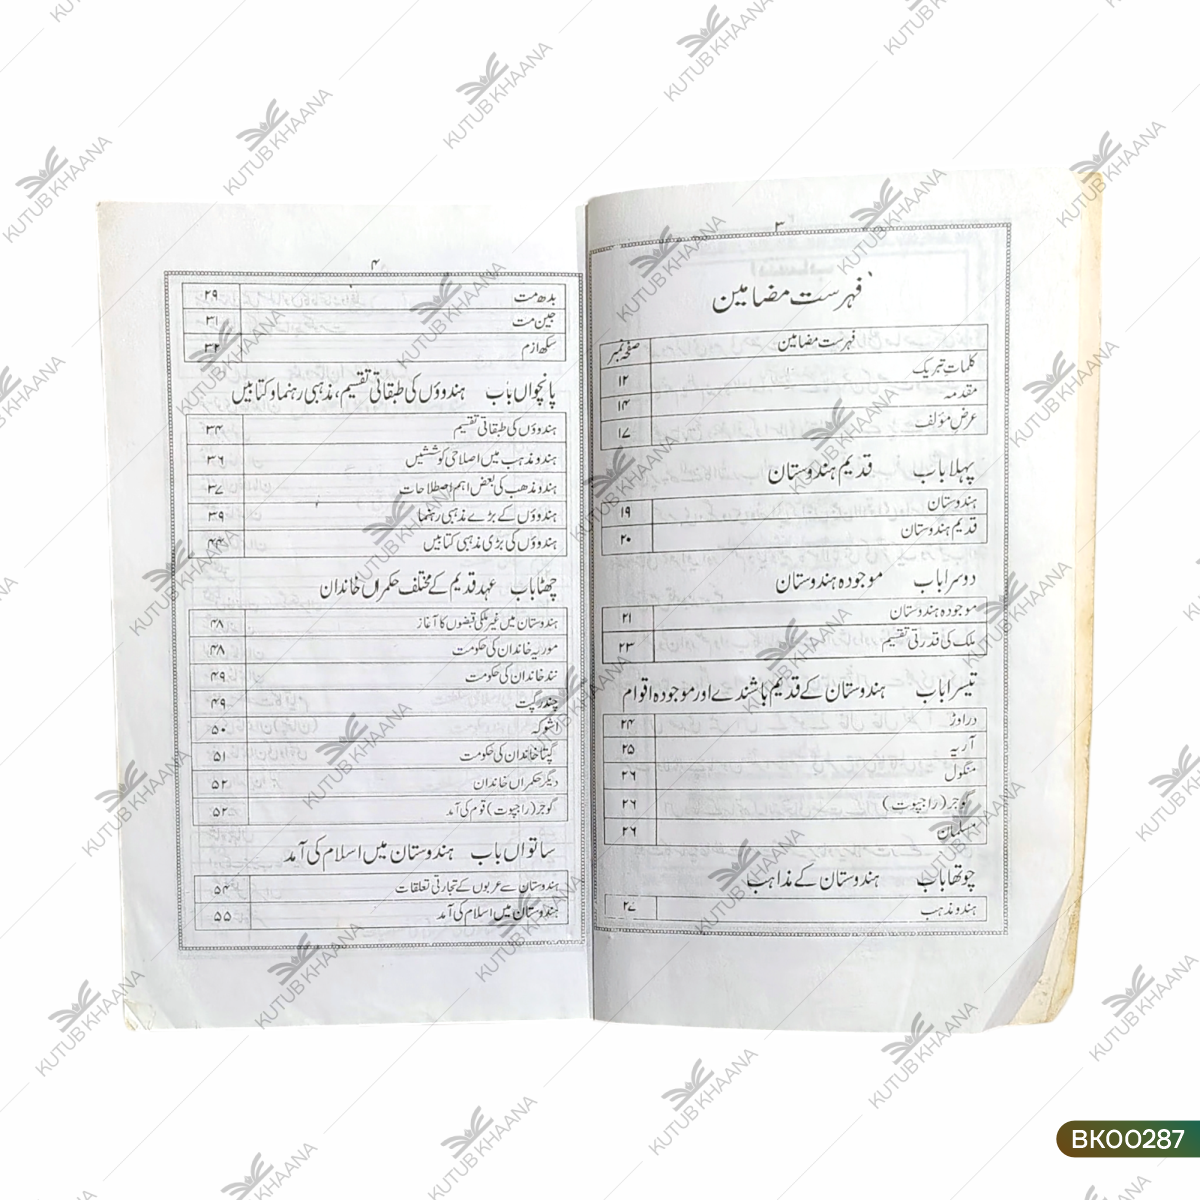 ۳
فہرست مضامین
فہرست مضامین صفحہ نمبر
کلمات تبریک ۱۲
مقدمہ ۱۴
عرض مؤلف ۱۷
پہلا باب قدیم ہندوستان
ہندوستان ۱۹
قدیم ہندوستان ۲۰
دوسرا باب موجودہ ہندوستان
موجودہ ہندوستان ۲۱
ملک کی قدرتی تقسیم ۲۳
تیسرا باب ہندوستان کے قدیم باشندے اور موجودہ اقوام
دراوڑ ۲۴
آریہ ۲۵
منگول ۲۶
گوجر (راجپوت) ۲۶
مسلمان ۲۶
چوتھا باب ہندوستان کے مذاہب
ہندو مذہب ۲۷
۴
بدھ مت ۲۹
جین مت ۳۱
سکھ ازم ۳۲
پانچواں باب ہندوؤں کی طبقاتی تقسیم، مذہبی رہنما و کتابیں
ہندوؤں کی طبقاتی تقسیم ۳۴
ہندو مذہب میں اصلاحی کوششیں ۳۶
ہندو مذھب کی بعض اہم اصطلاحات ۳۷
ہندوؤں کے بڑے مذہبی رہنما ۳۹
ہندوؤں کی بڑی مذہبی کتابیں ۴۴
چھٹا باب عہد قدیم کے مختلف حکمراں خاندان
ہندوستان میں غیر ملکی قبضوں کا آغاز ۴۸
موریہ خاندان کی حکومت ۴۸
نند خاندان کی حکومت ۴۹
چندر گپت ۴۹
اشوکہ ۵۰
گپتا خاندان کی حکومت ۵۱
دیگر حکمراں خاندان ۵۲
گوجر (راجپوت) قوم کی آمد ۵۲
ساتواں باب ہندوستان میں اسلام کی آمد
ہندوستان سے عربوں کے تجارتی تعلقات ۵۴
ہندوستان میں اسلام کی آمد ۵۵
KUTUB KHAANA
BK00287